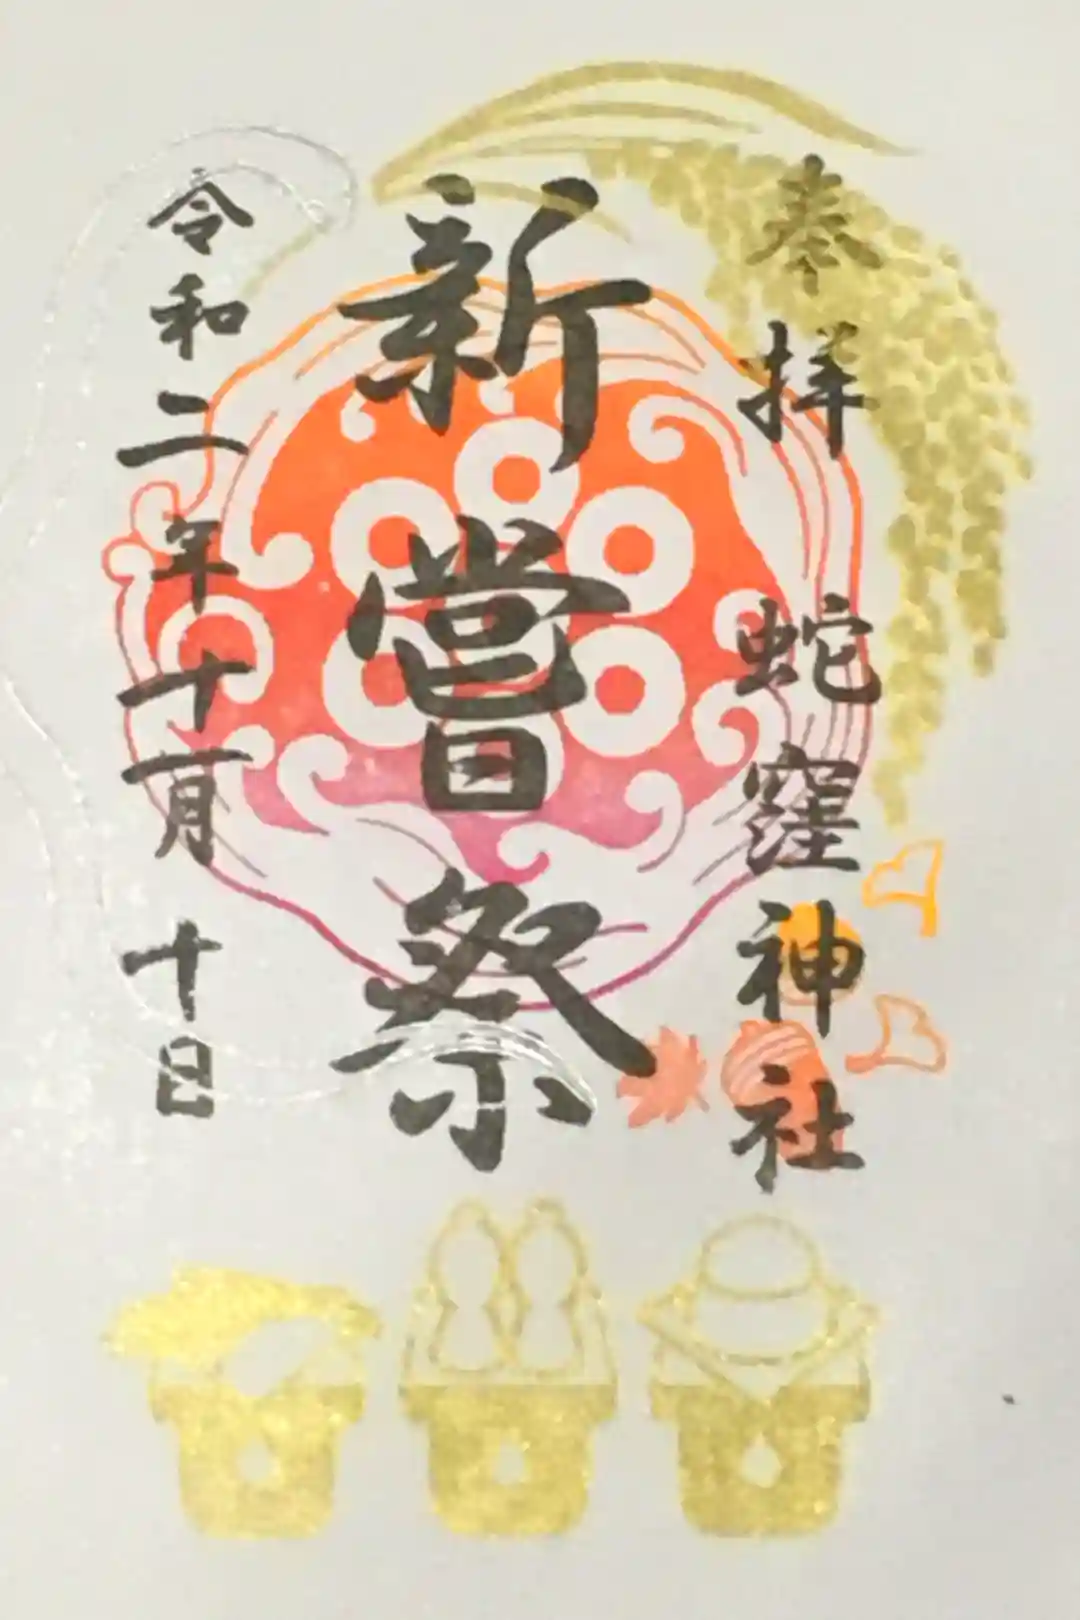 奉拝 蛇窪神社
新嘗祭
令和二年十一月 十日